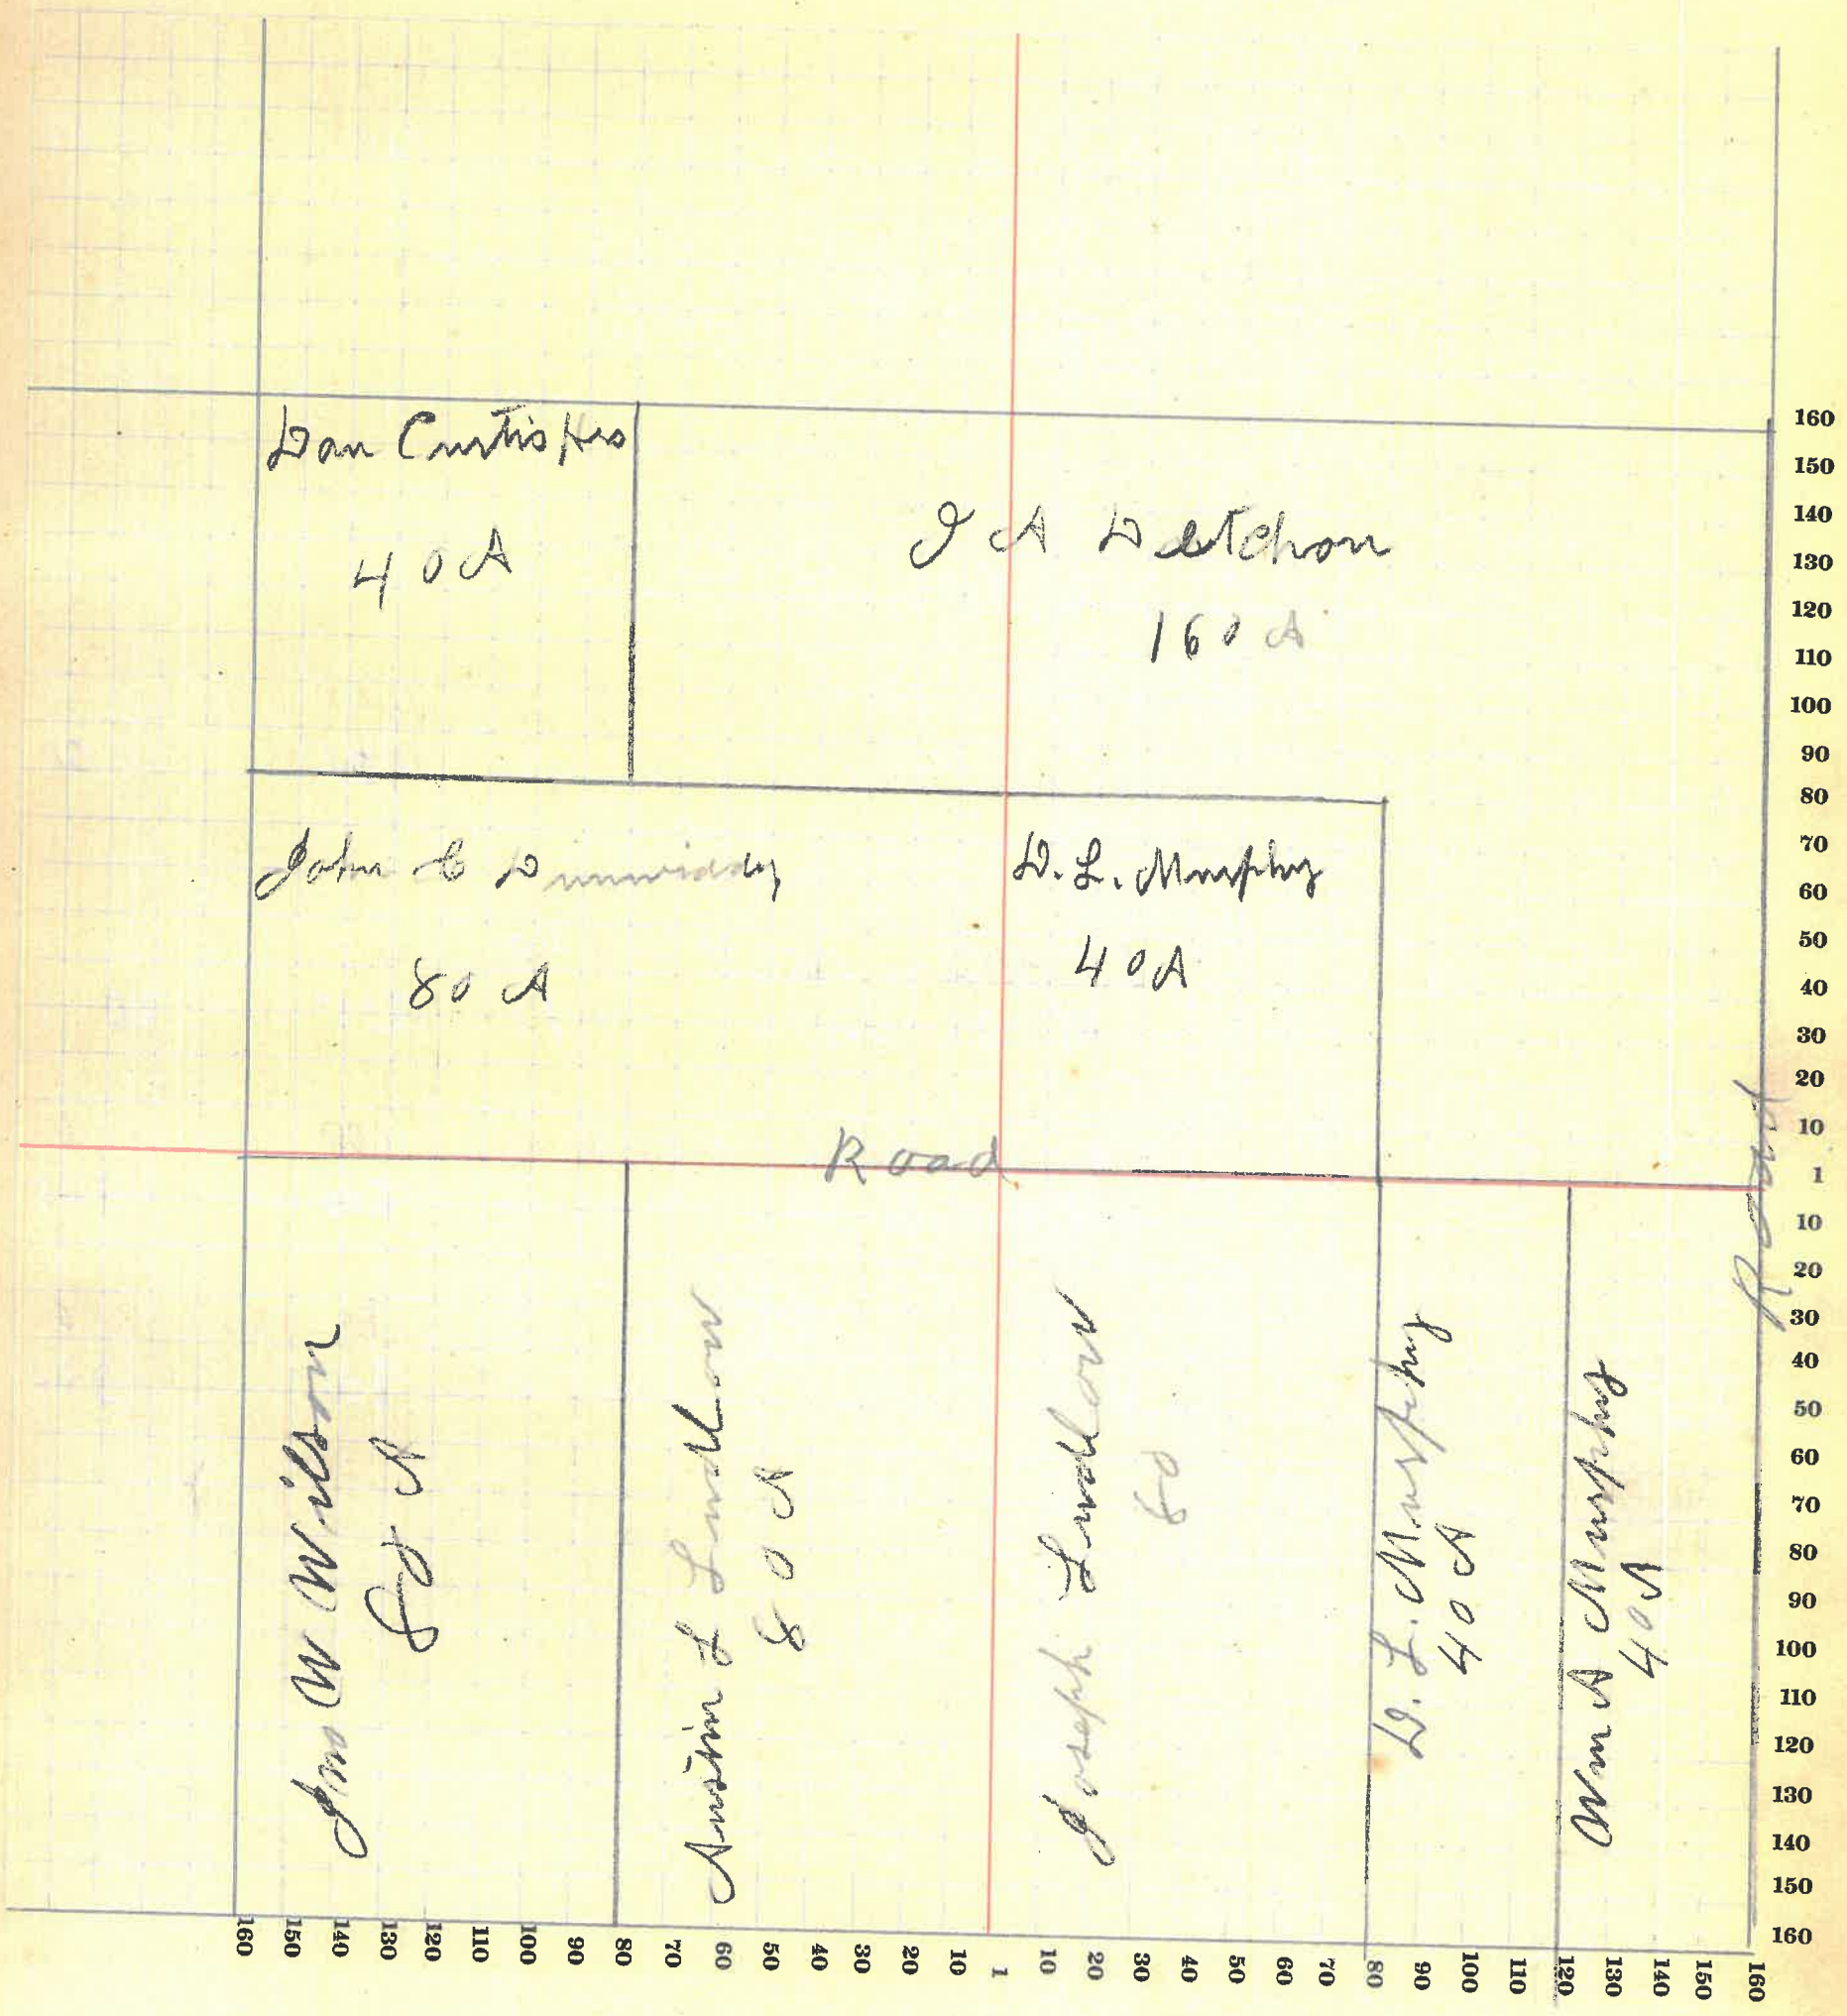 Dan Curtis Hrs
40 A
J A Detchon
160 A
John C Dunwiddy
80 A
D. L. Murphy
40 A
Road
Road
Jno W Wilson
80 A
Austin L Ludlow
80 A
Joseph Ludlow
80
D. L. Murphy
40 A
Wm A Murphy
40 A
160
150
140
130
120
110
100
90
80
70
60
50
40
30
20
10
1
10
20
30
40
50
60
70
80
90
100
110
120
130
140
150
160
160 150 140 130 120 110 100 90 80 70 60 50 40 30 20 10 1 10 20 30 40 50 60 70 80 90 100 110 120 130 140 150 160